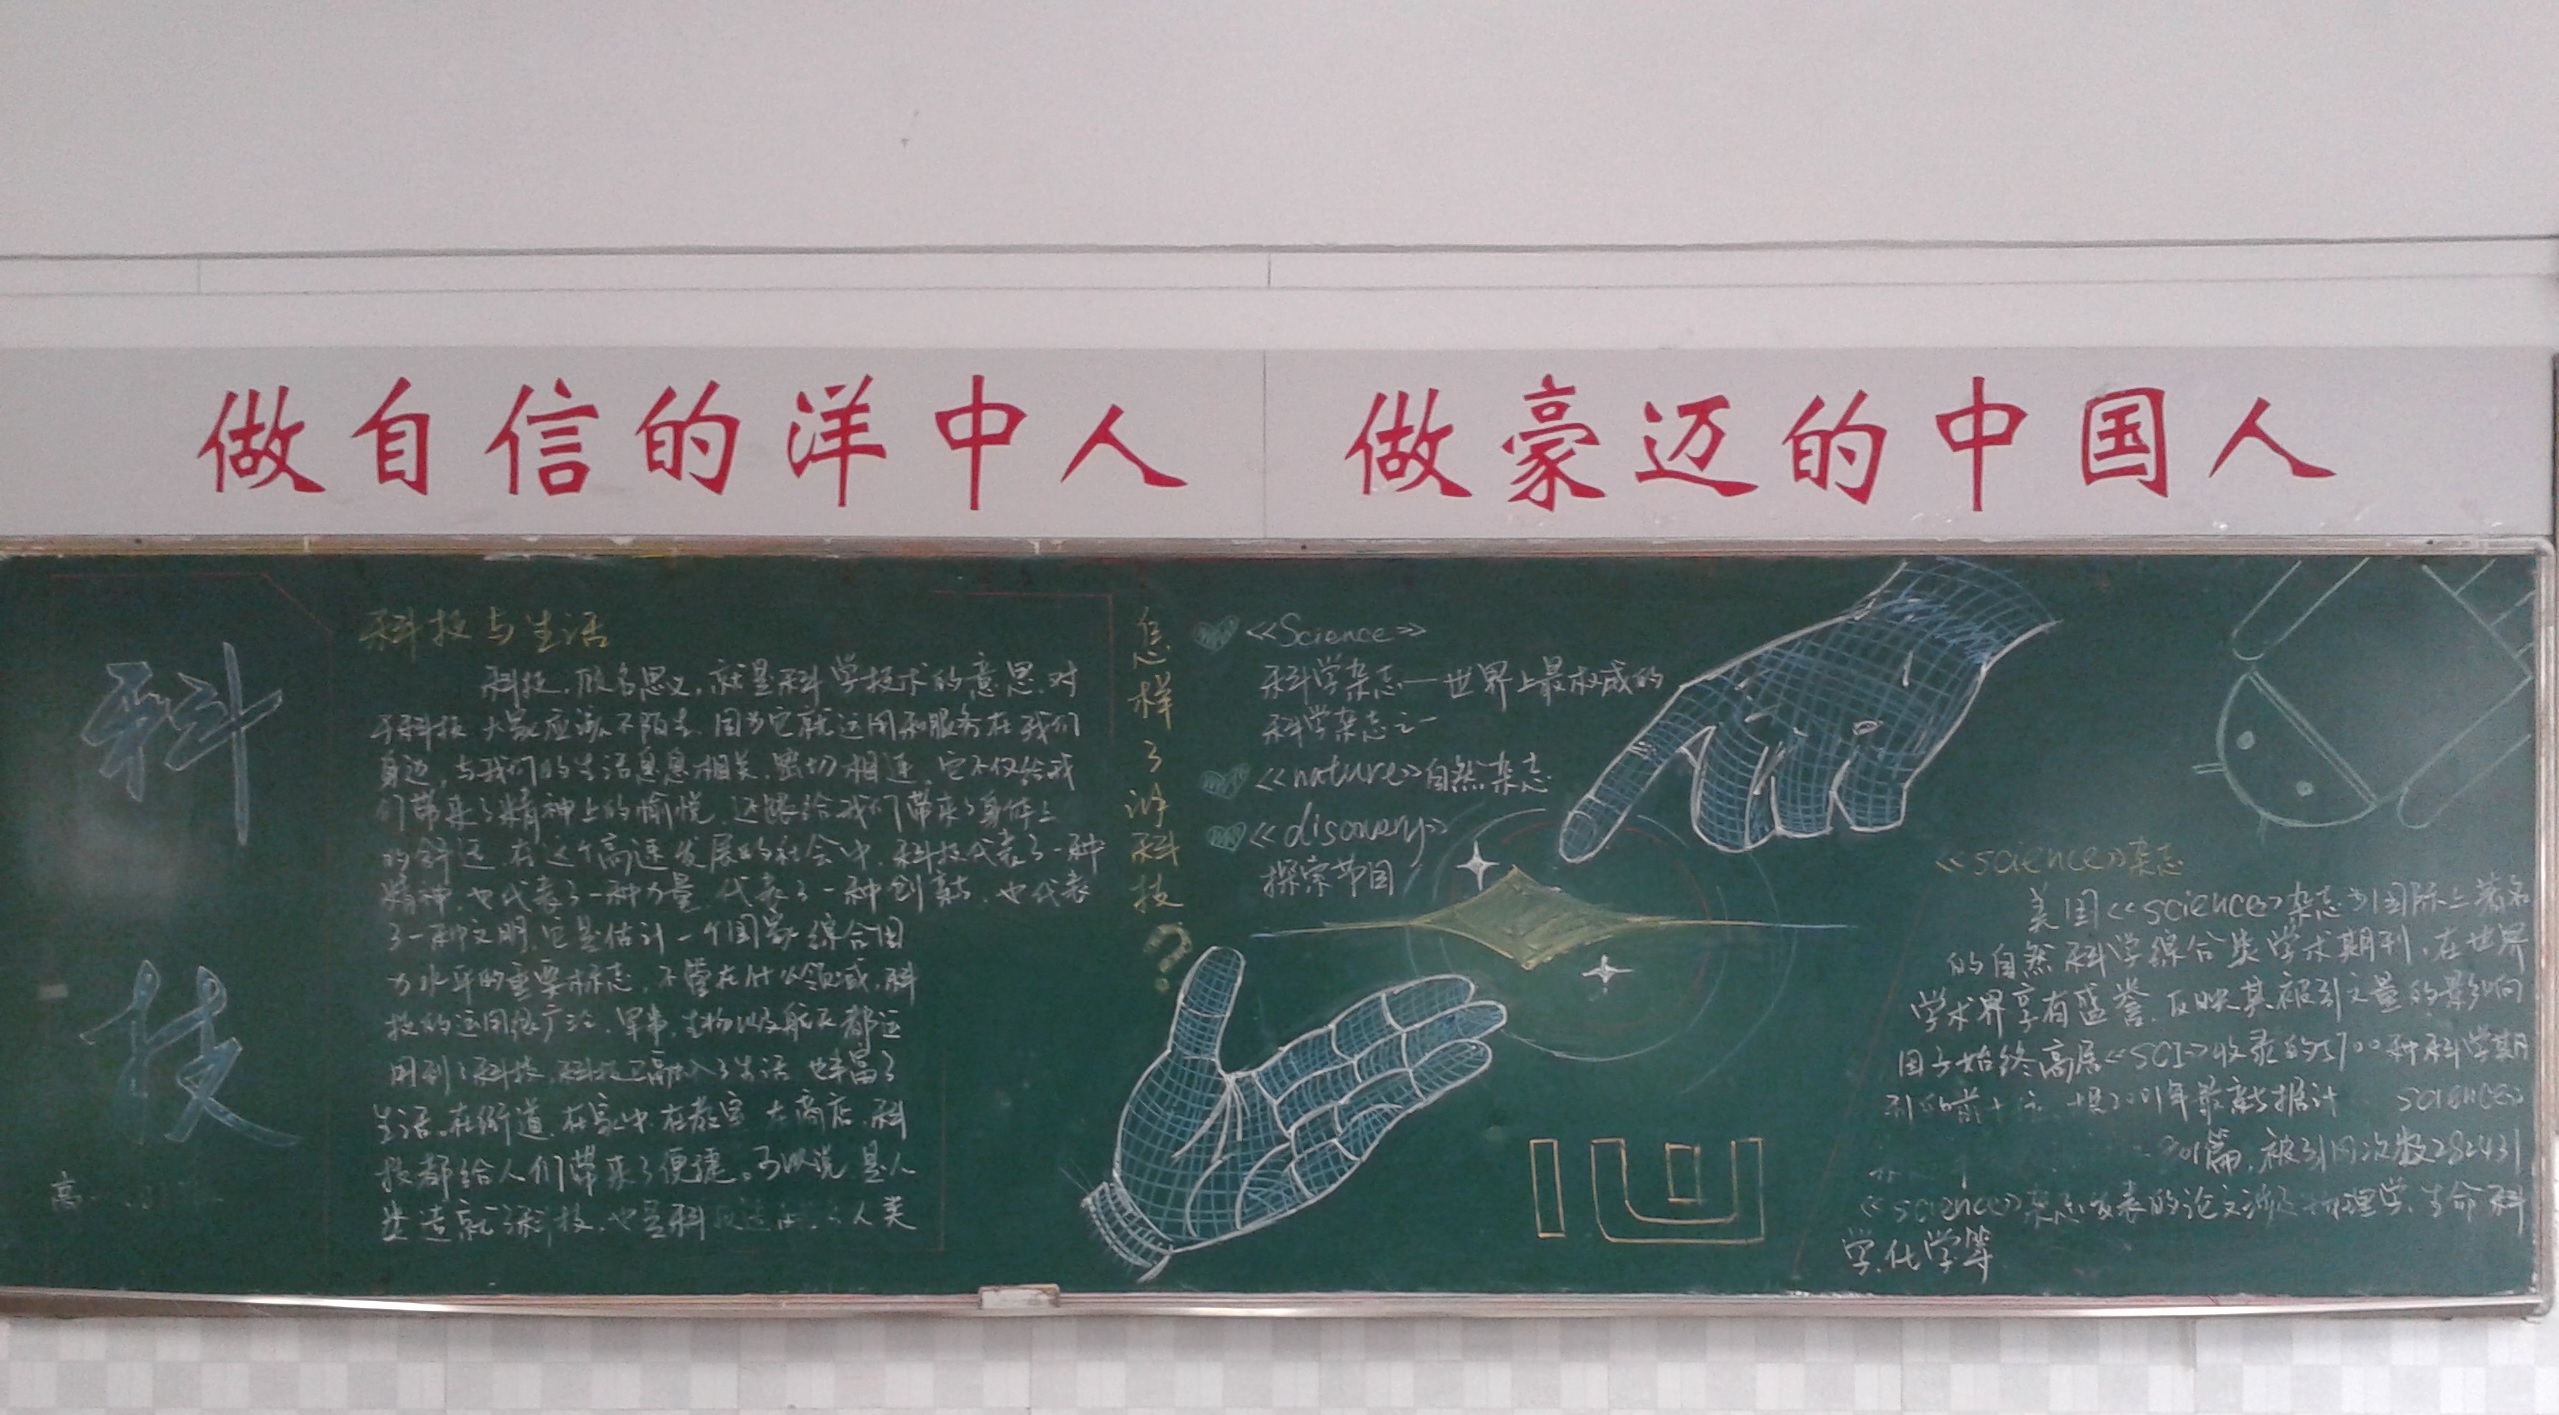 做自信的洋中人 做豪迈的中国人
科技
高一
科技与生活
科技,顾名思义,就是科学技术的意思.对
于科技大家应该不陌生.因为它就运用和服务在我们
身边,与我们的生活息息相关,密切相连,它不仅给我
们带来了精神上的愉悦,还给我们带来了身体上
的舒适.在这个高速发展的社会中,科技代表了一种
精神,也代表了一种力量,代表了一种创新,也代表
了一种文明.它是估计一个国家综合国
力水平的重要标志,不管在什么领域,科
技的运用很广泛.军事,生物以及航天都运
用到了科技,科技融入了生活 也丰富了
生活。在街道,在家中,在教室 在商店,科
技都给人们带来了便捷。可以说 是人
类造就了科技,也是科 人类
怎样了解科技?
《Science》
科学杂志—世界上最权威的
科学杂志之一
《nature》自然杂志
《discovery》
探索节目
《science》杂志
美国《science》杂志为国际上著名
的自然科学综合类学术期刊,在世界
学术界享有盛誉.反映其被引文量的影响
因子始终高居《SCI》收录的5700种科学期
刊的前十 2001年最新数据计 science》
201篇,被引用次数282431
《science》杂志发表的论文涉及物理学.生命科
学.化学等